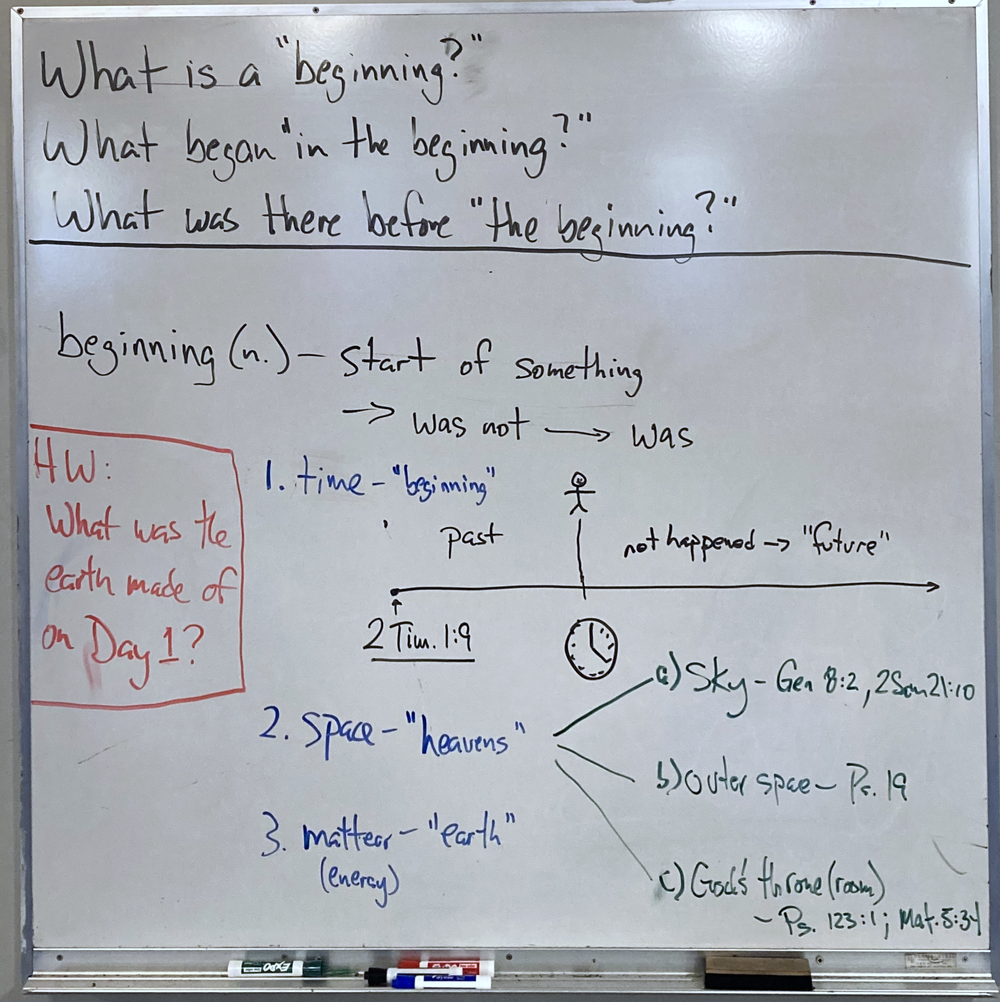 What is a "beginning?"
What began "in the beginning?"
What was there before "the beginning?"
beginning (n.) – start of something
→ was not → was
HW:
What was the
earth made of
on Day 1?
1. time – "beginning"
past
not happened → "future"
2 Tim. 1:9
2. space – "heavens"
a) Sky – Gen 8:2, 2Sam 21:10
b) outer space – Ps. 19
c) God's throne (room)
– Ps. 123:1; Mat. 5:34
3. mattear – "earth"
(energy)
EXPO